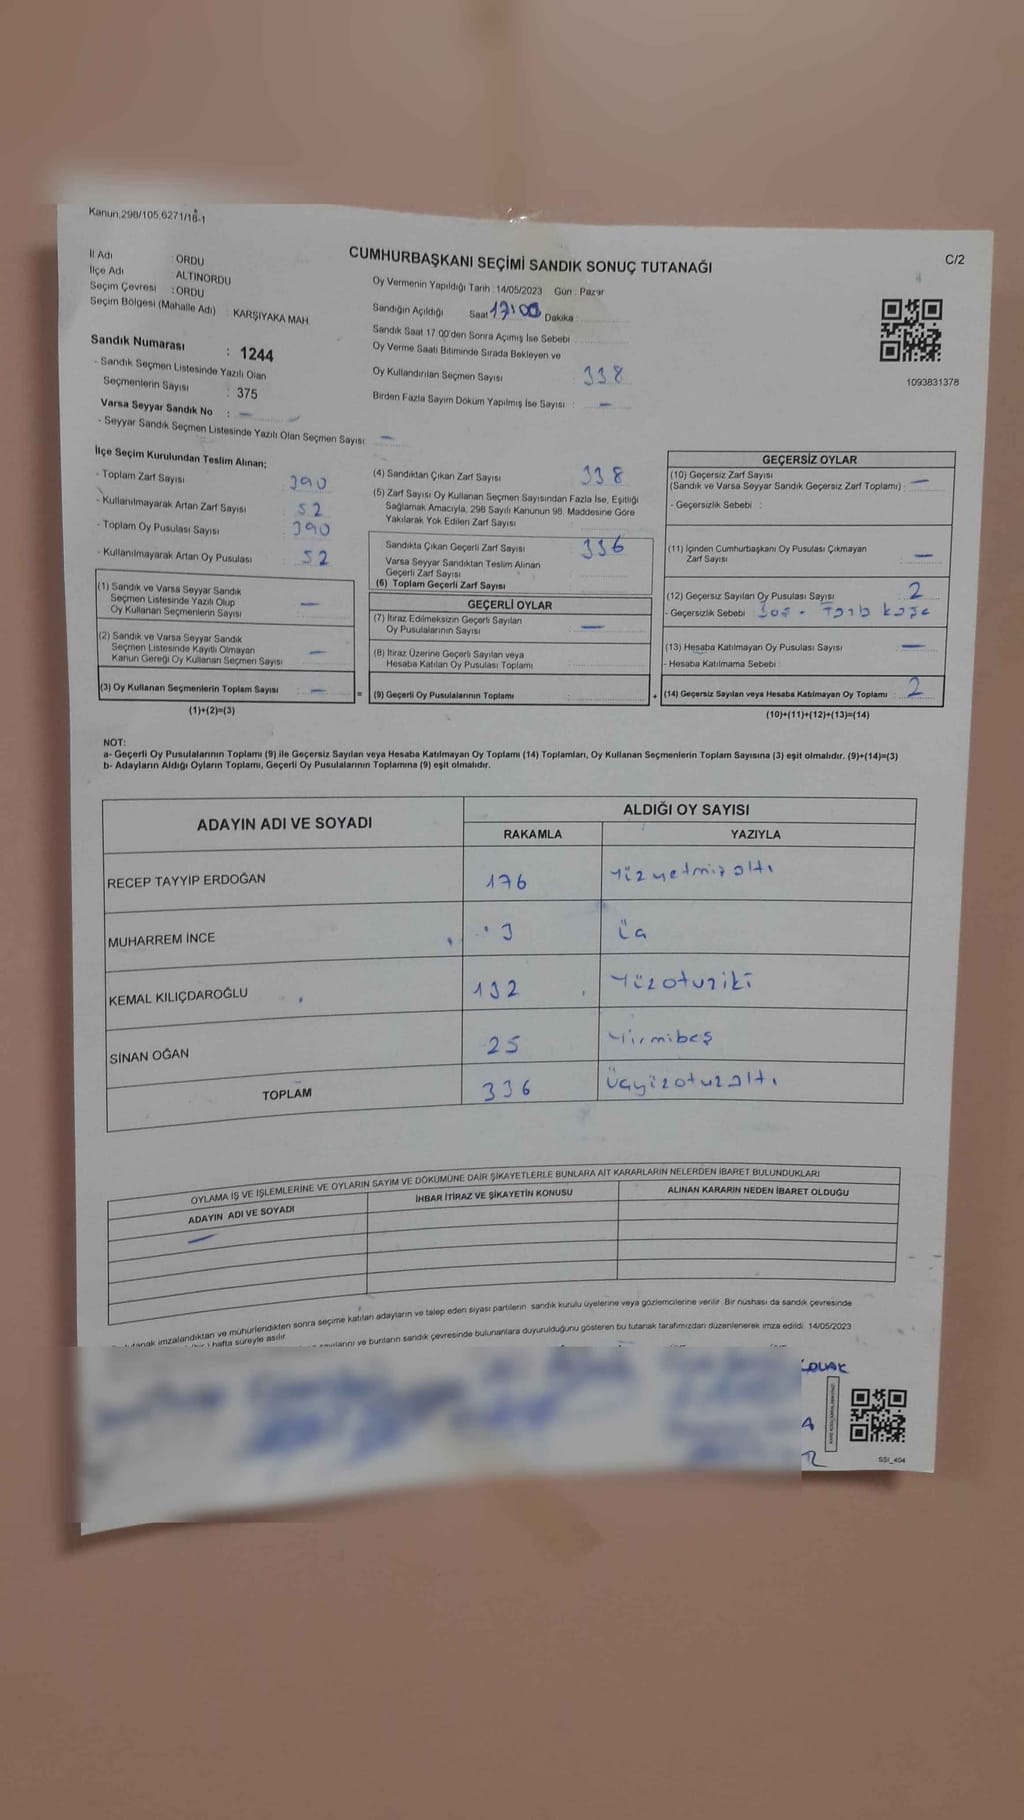 Kanun;298/105,6271/18-1
C/2
CUMHURBAŞKANI SEÇİMİ SANDIK SONUÇ TUTANAĞI
İl Adı : ORDU
İlçe Adı : ALTINORDU
Seçim Çevresi : ORDU
Seçim Bölgesi (Mahalle Adı) : KARŞIYAKA MAH.
Sandık Numarası : 1244
- Sandık Seçmen Listesinde Yazılı Olan
Seçmenlerin Sayısı : 375
Varsa Seyyar Sandık No : —
- Seyyar Sandık Seçmen Listesinde Yazılı Olan Seçmen Sayısı —
Oy Vermenin Yapıldığı Tarih : 14/05/2023 Gün : Pazar
Sandığın Açıldığı Saat 17:00 Dakika
Sandık Saat 17.00'den Sonra Açımış İse Sebebi :
Oy Verme Saati Bitiminde Sırada Bekleyen ve
Oy Kullandırılan Seçmen Sayısı 338
Birden Fazla Sayım Döküm Yapılmış İse Sayısı : —
1093831378
İlçe Seçim Kurulundan Teslim Alınan;
- Toplam Zarf Sayısı 390
- Kullanılmayarak Artan Zarf Sayısı 52
- Toplam Oy Pusulası Sayısı 390
- Kullanılmayarak Artan Oy Pusulası 52
(1) Sandık ve Varsa Seyyar Sandık
Seçmen Listesinde Yazılı Olup
Oy Kullanan Seçmenlerin Sayısı —
(2) Sandık ve Varsa Seyyar Sandık
Seçmen Listesinde Kayıtlı Olmayan
Kanun Gereği Oy Kullanan Seçmen Sayısı —
(3) Oy Kullanan Seçmenlerin Toplam Sayısı —
(1)+(2)=(3)
(4) Sandıktan Çıkan Zarf Sayısı 338
(5) Zarf Sayısı Oy Kullanan Seçmen Sayısından Fazla İse, Eşitliği
Sağlamak Amacıyla, 298 Sayılı Kanunun 98. Maddesine Göre
Yakılarak Yok Edilen Zarf Sayısı
Sandıkta Çıkan Geçerli Zarf Sayısı 336
Varsa Seyyar Sandıktan Teslim Alınan
Geçerli Zarf Sayısı
(6) Toplam Geçerli Zarf Sayısı
GEÇERLİ OYLAR
(7) İtiraz Edilmeksizin Geçerli Sayılan
Oy Pusulalarının Sayısı —
(8) İtiraz Üzerine Geçerli Sayılan veya
Hesaba Katılan Oy Pusulası Toplamı
= (9) Geçerli Oy Pusulalarının Toplamı
GEÇERSİZ OYLAR
(10) Geçersiz Zarf Sayısı
(Sandık ve Varsa Seyyar Sandık Geçersiz Zarf Toplamı) : —
- Geçersizlik Sebebi :
(11) İçinden Cumhurbaşkanı Oy Pusulası Çıkmayan
Zarf Sayısı —
(12) Geçersiz Sayılan Oy Pusulası Sayısı 2
- Geçersizlik Sebebi :
(13) Hesaba Katılmayan Oy Pusulası Sayısı —
- Hesaba Katılmama Sebebi
+ (14) Geçersiz Sayılan veya Hesaba Katılmayan Oy Toplamı 2
(10)+(11)+(12)+(13)=(14)
NOT:
a- Geçerli Oy Pusulalarının Toplamı (9) ile Geçersiz Sayılan veya Hesaba Katılmayan Oy Toplamı (14) Toplamları, Oy Kullanan Seçmenlerin Toplam Sayısına (3) eşit olmalıdır. (9)+(14)=(3)
b- Adayların Aldığı Oyların Toplamı, Geçerli Oy Pusulalarının Toplamına (9) eşit olmalıdır.
ADAYIN ADI VE SOYADI ALDIĞI OY SAYISI
RAKAMLA YAZIYLA
RECEP TAYYİP ERDOĞAN 176 Yüzyetmişaltı
MUHARREM İNCE 3 Üç
KEMAL KILIÇDAROĞLU 132 Yüzotuziki
SİNAN OĞAN 25 Yirmibeş
TOPLAM 336 Üçyüzotuzaltı
OYLAMA İŞ VE İŞLEMLERİNE VE OYLARIN SAYIM VE DÖKÜMÜNE DAİR ŞİKAYETLERLE BUNLARA AİT KARARLARIN NELERDEN İBARET BULUNDUKLARI
ADAYIN ADI VE SOYADI İHBAR İTİRAZ VE ŞİKAYETİN KONUSU ALINAN KARARIN NEDEN İBARET OLDUĞU
—
tutanak imzalandıktan ve mühürlendikten sonra seçime katılan adayların ve talep eden siyasi partilerin sandık kurulu üyelerine veya gözlemcilerine verilir. Bir nüshası da sandık çevresinde
hafta süreyle asılır.
ve bunların sandık çevresinde bulunanlara duyurulduğunu gösteren bu tutanak tarafımızdan düzenlenerek imza edildi. 14/05/2023
SSI_404